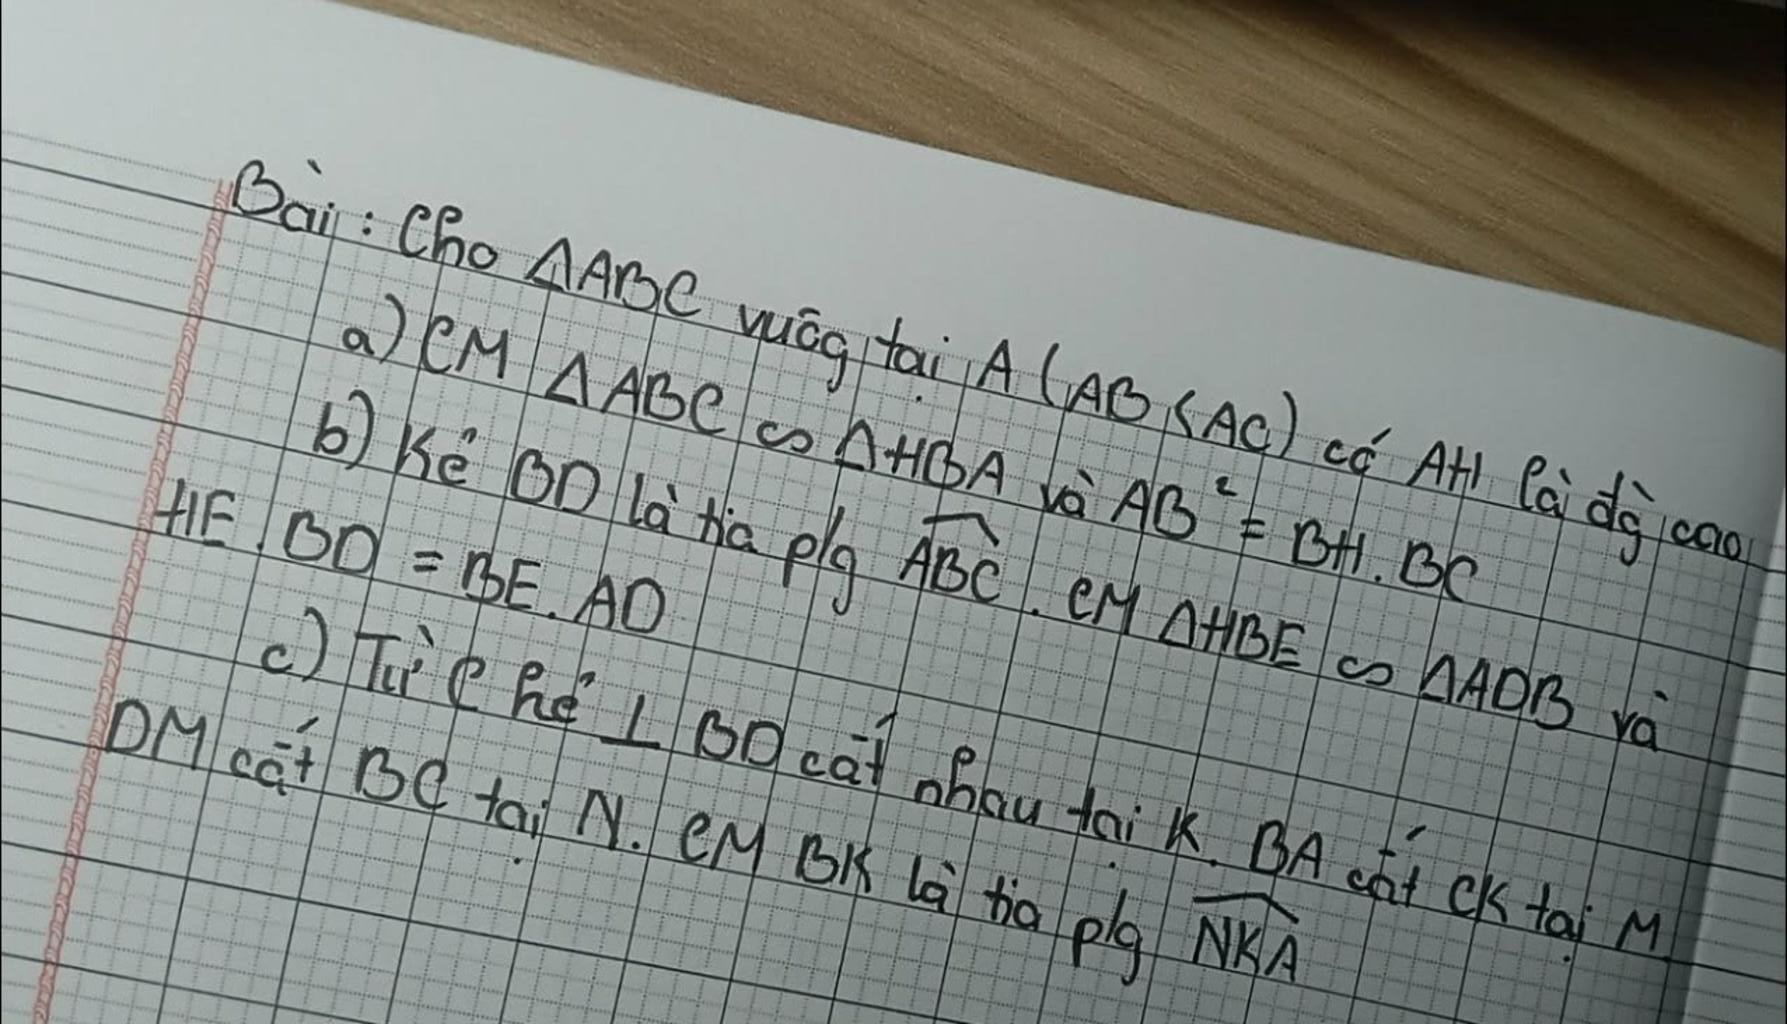 Bài: Cho ΔABC vuōg tại A (AB < AC) có AH là đg` cao
a) CM ΔABC ∽ ΔHBA và AB² = BH.BC
b) Kẻ BD là tia p/g ABC. CM ΔHBE ∽ ΔADB và
HE.BD = BE.AD
c) Từ C kẻ ⊥ BD cắt nhau tại K. BA cắt CK tại M
DM cắt BC tại N. CM BK là tia p/g NKA